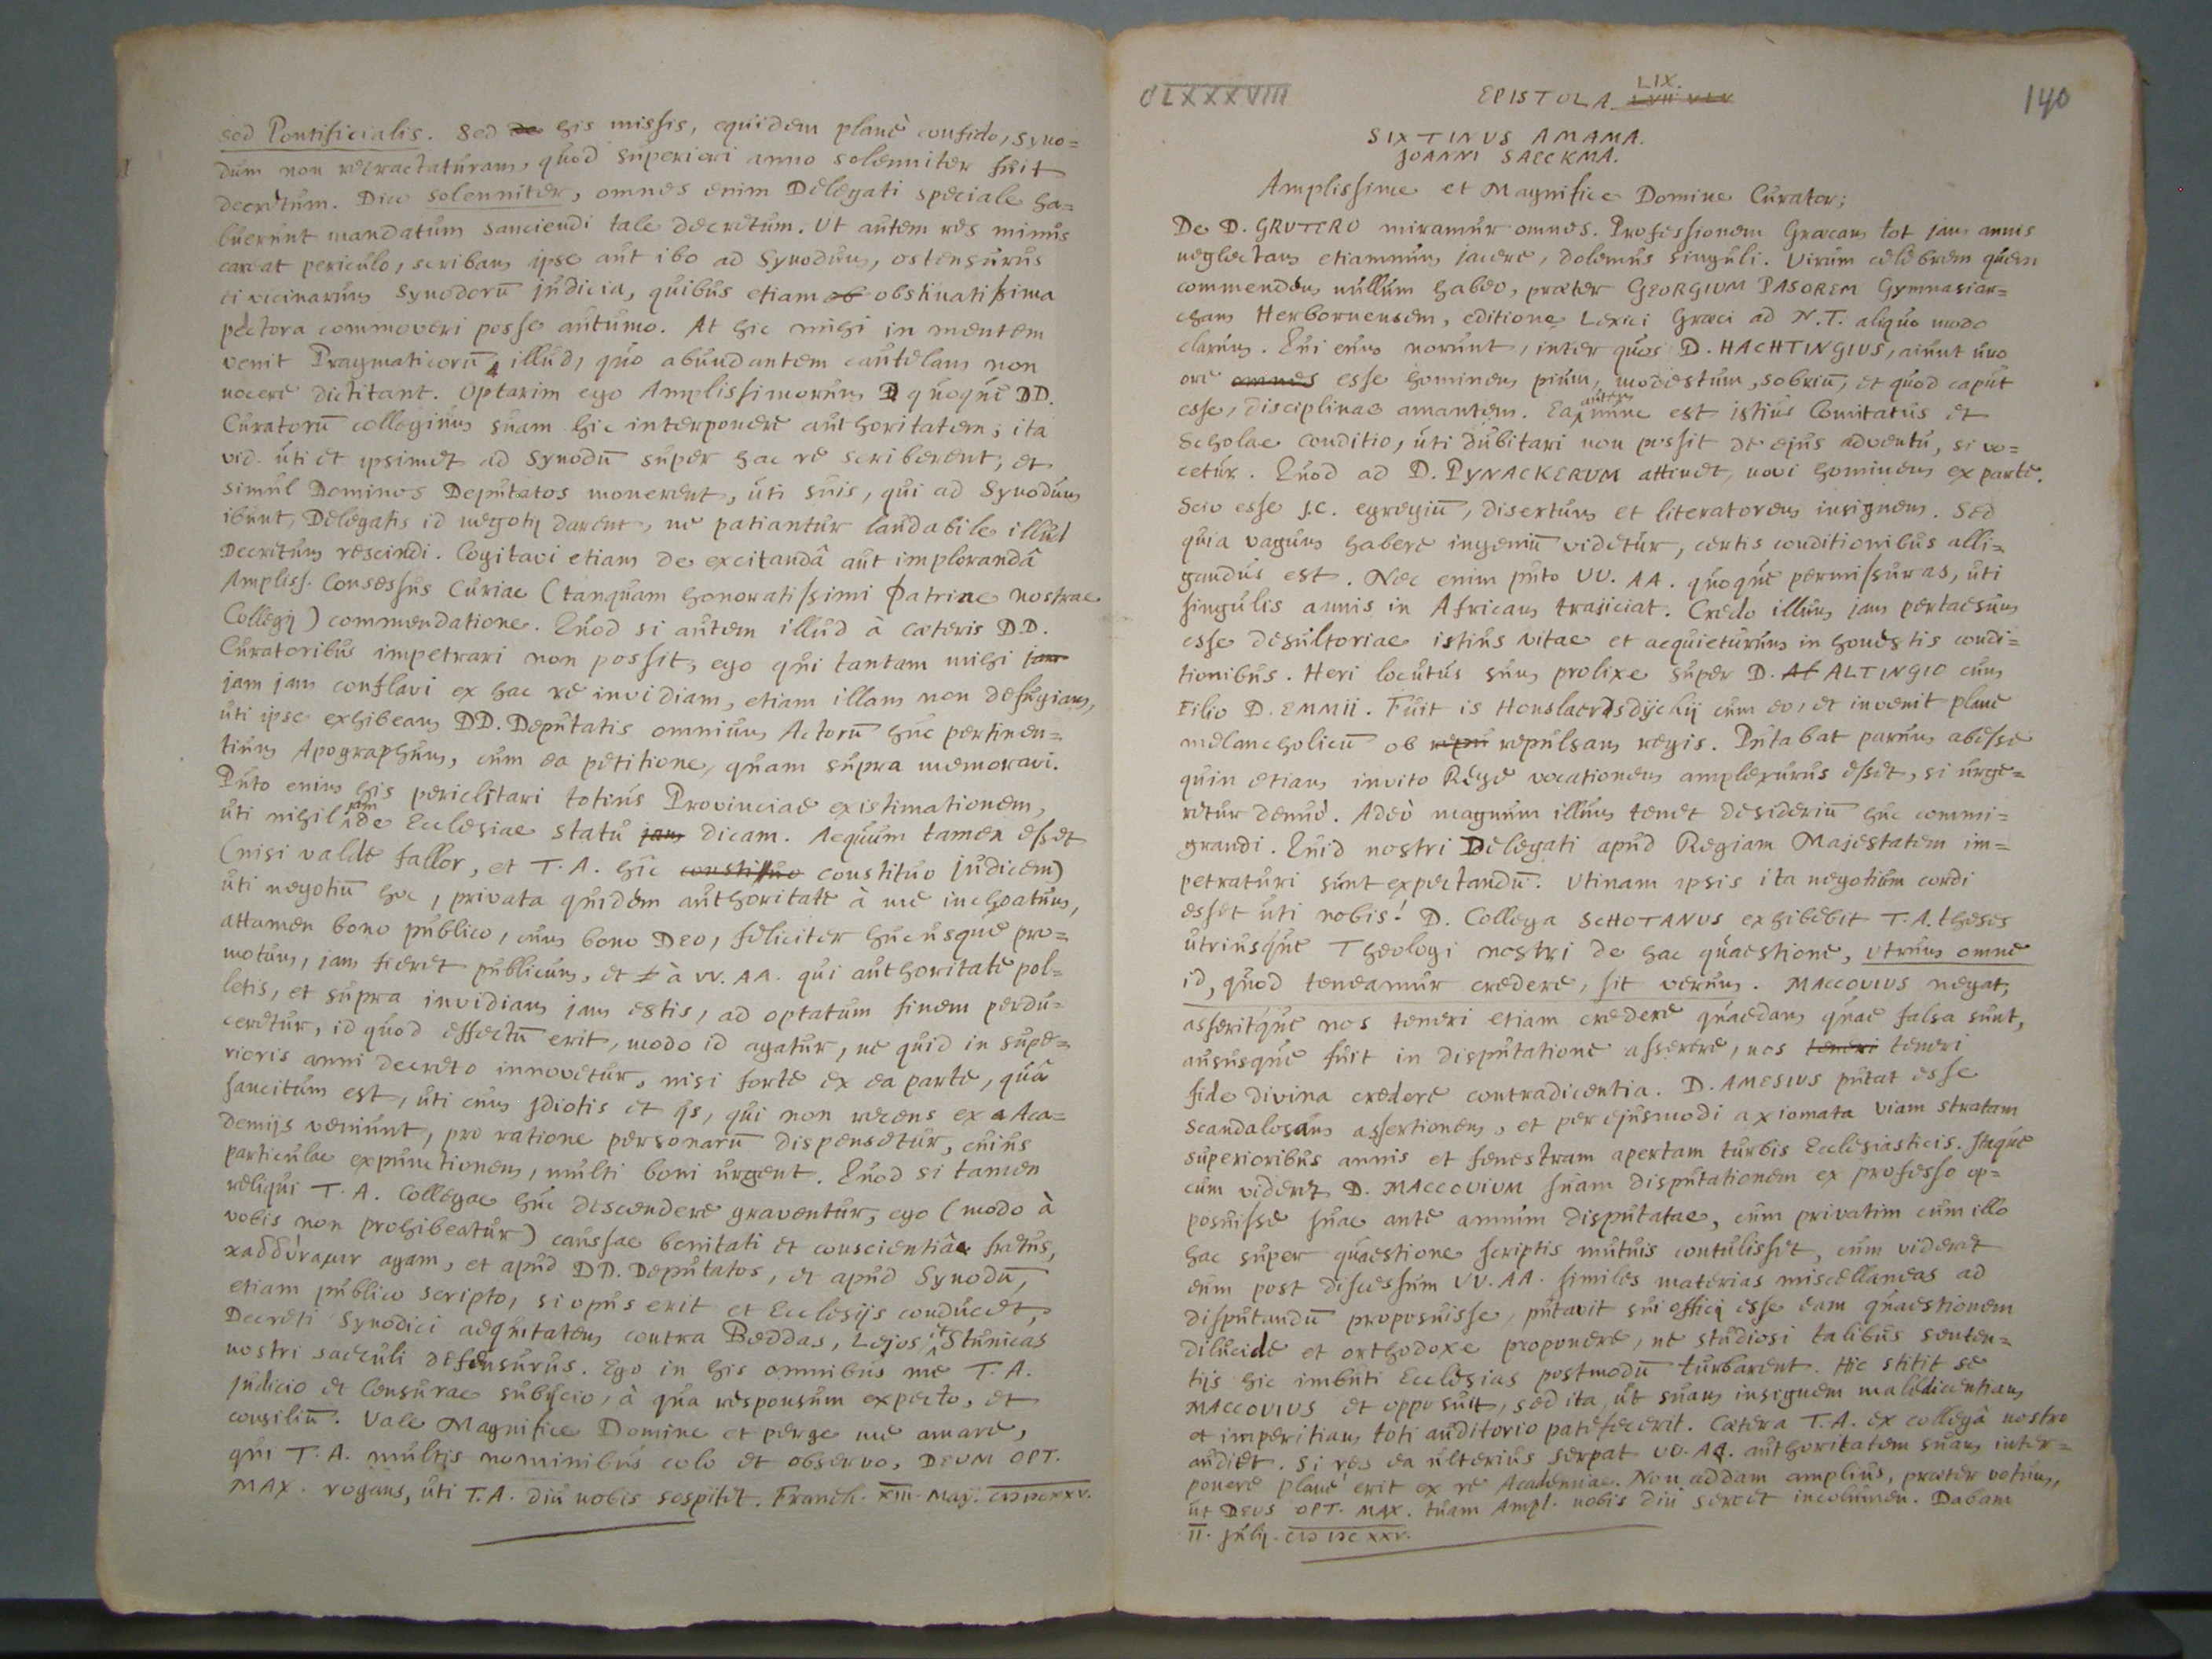 sed Pontificialis. Sed de his missis, equidem planè confido, Syno=
dum non retractaturam, quod superiori anno solenniter fuit
decretum. Dico solenniter, omnes enim Delegati speciale ha=
buerunt mandatum sanciendi tale decretum. Ut autem res minus
careat periculo, scribam ipse aut ibo ad Synodum, ostensurus
ei vicinarum Synodorū judicia, quibus etiam ob obstinatissima
pectora commoveri posse autumo. At hic mihi in mentem
venit Pragmaticorū illud, quo abundantem cautelam non
nocere dictitant. Optarim ego Amplissimorum D quoque DD.
Curatorū collegium suam hic interponere authoritatem; ita
vid. uti et ipsimet ad Synodū super hac re scriberent, et
simul Dominos Deputatos monerent, uti suis, qui ad Synodum
ibunt, Delegatis id negotij darent, ne patiantur laudabile illud
Decretum rescindi. Cogitavi etiam de excitandâ aut implorandâ
Ampliss. Consessus Curiae (tanquam honoratissimi Patrine nostrae
Collegij) commendatione. Quod si autem illud à cæteris D.D.
Curatoribus impetrari non possit, ego qui tantam mihi jam
jam jam conflavi ex hac re invidiam, etiam illam non defugiam,
uti ipse exhibeam DD. Deputatis omnium Actorū huc pertinen=
tium Apographum, cum ea petitione, quam supra memoravi.
Puto enim his periclitari totius Provinciae existimationem,
uti nihil jam de Ecclesiae statu jam dicam. Aequum tamen esset
(nisi valde fallor, et T. A. hîc constituo constituo judicem)
uti negotiū hoc, privata quidem authoritate à me inchoatum,
attamen bono publico, cum bono Deo, feliciter hucusque pro=
motum, jam fieret publicum, et à VV. AA. qui authoritate pol=
letis, et supra invidiam jam estis, ad optatum finem perdu=
ceretur, id quod effectū erit, modo id agatur, ne quid in supe=
rioris anni decreto innovetur, nisi forte ex ea parte, quâ
sancitum est, uti cum Idiotis et ijs, qui non recens ex Aca=
demijs veniunt, pro ratione personarū dispensetur, cuius
particulae expunctionem, multi boni urgent. Quod si tamen
reliqui T. A. Collegae huc descendere graventur, ego (modo à
vobis non prohibeatur) caussae bonitati et conscientiae fretus,
καδδύναμιν agam, et apud DD. Deputatos, et apud Synodū,
etiam publico scripto, si opus erit et Ecclesijs conducet,
Decreti Synodici aequitatem contra Beddas, Lejos et Stunicas
nostri saeculi defensurus. Ego in his omnibus me T. A.
judicio et Censurae subijcio, à qua responsum expecto, et
consiliū. Vale Magnifice Domine et perge me amare,
qui T. A. multis nominibus colo et observo, DEUM OPT.
MAX. rogans, uti T.A. diu nobis sospitet. Franek. XIII. Maij. CIƆ IƆC XXV.
CLXXXVIII
EPISTOLA LIX.
140
SIXTINUS AMAMA.
JOANNI SAECKMA.
Amplissime et Magnifice Domine Curator;
De D. GRUTERO miramur omnes. Professionem Græcam tot jam annis
neglectam etiamnum jacere, dolemus singuli. Virum celebrem quem
commendem nullum habeo, præter GEORGIUM PASOREM Gymnasiar=
cham Herbornensem, editione Lexici Græci ad N.T. aliquo modo
clarum. Qui eum norunt, inter quos D. HACHTINGIUS, aiunt uno
ore omnes esse hominem pium, modestum, sobriū, et quod caput
esse, disciplinae amantem. Ea autem nunc est istius Comitatus et
Scholae conditio, uti dubitari non possit de ejus adventu, si vo=
cetur. Quod ad D. PYNACKERUM attinet, novi hominem ex parte.
Scio esse J.C. egregiū, disertum et literatorem insignem. Sed
quia vagum habere ingeniū videtur, certis conditionibus alli=
gandus est. Nec enim puto VV. AA. quoque permissuras, uti
singulis annis in Africam trajiciat. Credo illum jam pertaesum
esse desultoriae istius vitae et acquieturum in honestis condi=
tionibus. Heri locutus sum prolixe super D. Al ALTINGIO cum
Filio D. EMMII. Fuit is Honslaerdsdijckij cum eo, et invenit plane
melancholicū ob repu repulsam regis. Putabat parum abesse
quin etiam invito Rege vocationem amplexurus esset, si urge=
retur denuò. Adeò magnum illum tenet desideriū huc commi=
grandi. Quid nostri Delegati apud Regiam Majestatem im=
petraturi sunt expectandū. Utinam ipsis ita negotium cordi
esset uti nobis! D. Collega SCHOTANUS exhibebit T.A. theses
utriusque Theologi nostri de hac quaestione, utrum omne
id, quod teneamur credere, sit verum. MACCOVIUS negat,
asseritque nos teneri etiam credere quaedam quae falsa sunt,
aususque fuit in disputatione asserere, nos teneri teneri
fide divina credere contradicentia. D. AMESIUS putat esse
scandalosam assertionem, et per ejusmodi axiomata viam stratam
superioribus annis et fenestram apertam turbis Ecclesiasticis. Itaque
cum videret D. MACCOVIUM suam disputationem ex professo op=
posuisse suae ante annum disputatae, cum privatim cum illo
hac super quaestione scriptis mutuis contulisset, cum videret
eum post discessum VV. AA. similes materias miscellaneas ad
disputandū proposuisse, putavit sui officij esse eam quaestionem
dilucide et orthodoxe proponere, ne studiosi talibus senten=
tijs hic imbuti Ecclesias postmodū turbarent. Hic stitit se
MACCOVIUS et opposuit, sed ita, ut suam insignem maledicentiam
et imperitiam toti auditorio patefecerit. Cætera T.A. ex collegâ nostro
audiet. Si res ea ulterius serpat VV. AA. authoritatem suam inter=
ponere planè erit ex re Academiae. Non addam amplius, præter votum,
ut DEUS OPT. MAX. tuam Ampl. nobis diu servet incolumen. Dabam
II. Julij. CIƆ IƆC XXV.